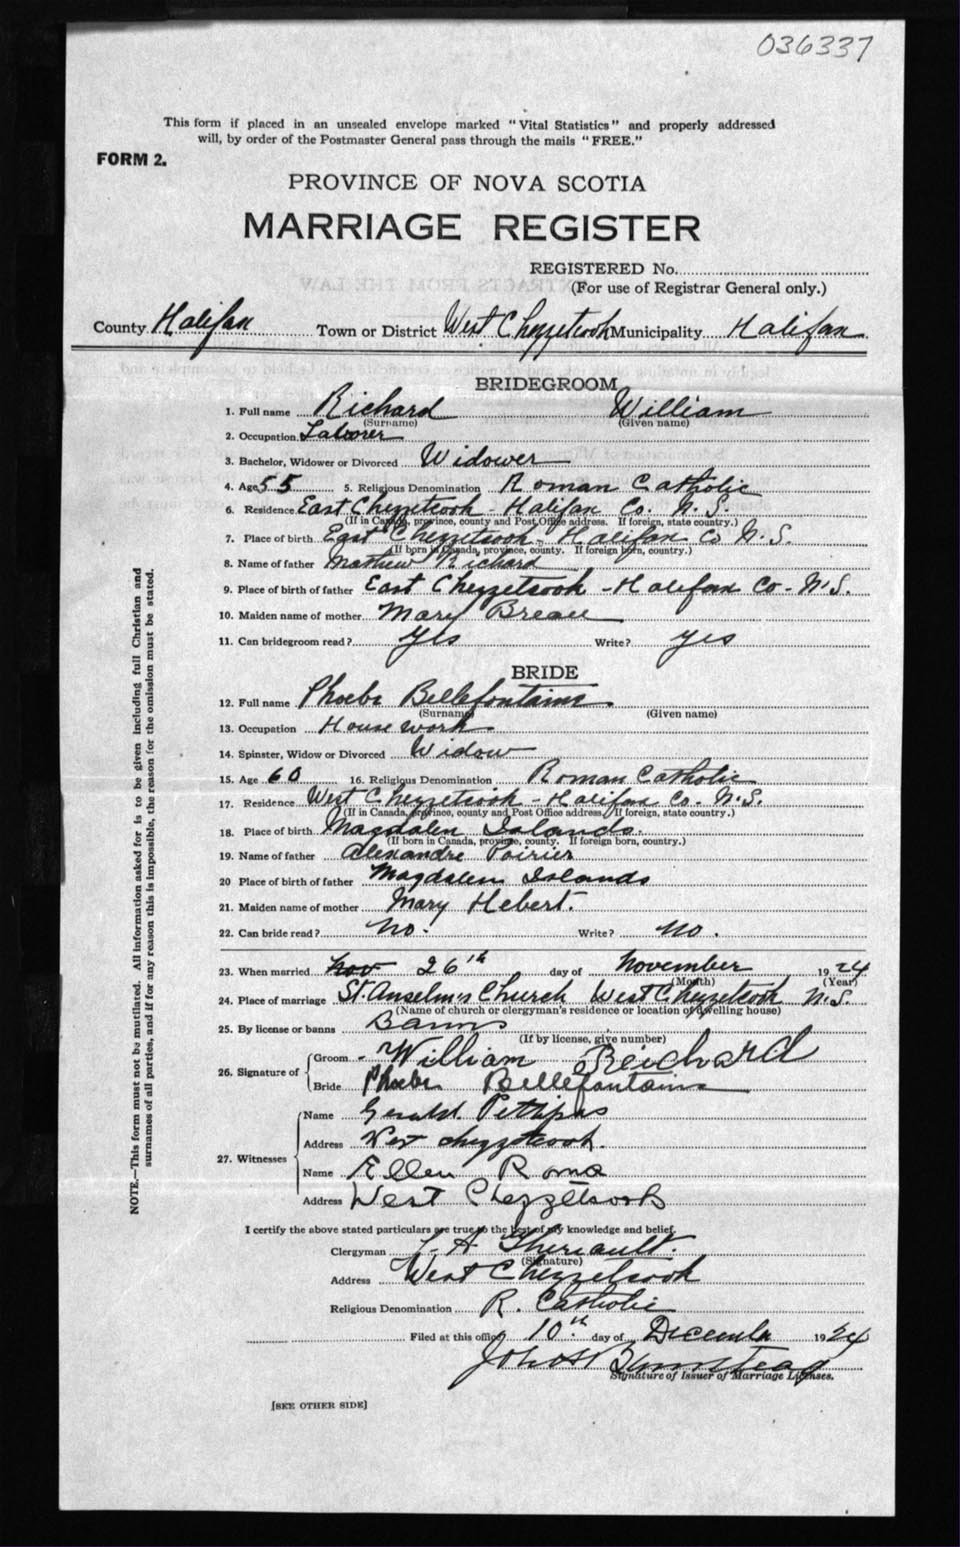 036337
This form if placed in an unsealed envelope marked "Vital Statistics" and properly addressed
will, by order of the Postmaster General pass through the mails "FREE."
FORM 2.
PROVINCE OF NOVA SCOTIA
MARRIAGE REGISTER
REGISTERED No.
(For use of Registrar General only.)
County Halifax Town or District West Chezzetcook Municipality Halifax
BRIDEGROOM
1. Full name Richard William
(Surname) (Given name)
2. Occupation Laborer
3. Bachelor, Widower or Divorced Widower
4. Age 55 5. Religious Denomination Roman Catholic
6. Residence East Chezzetcook - Halifax Co. N.S.
(If in Canada, province, county and Post Office address. If foreign, state country.)
7. Place of birth East Chezzetcook - Halifax Co N.S.
(If born in Canada, province, county. If foreign born, country.)
8. Name of father Mathew Richard
9. Place of birth of father East Chezzetcook - Halifax Co - N.S.
10. Maiden name of mother Mary Breau
11. Can bridegroom read? Yes Write? yes
BRIDE
12. Full name Phoebe Bellefontaine
(Surname) (Given name)
13. Occupation House work
14. Spinster, Widow or Divorced Widow
15. Age 60 16. Religious Denomination Roman Catholic
17. Residence West Chezzetcook - Halifax Co. N.S.
(If in Canada, province, county and Post Office address. If foreign, state country.)
18. Place of birth Magdalen Islands.
(If born in Canada, province, county. If foreign born, country.)
19. Name of father Alexandre Poirier
20 Place of birth of father Magdalen Islands
21. Maiden name of mother Mary Hebert.
22. Can bride read? No. Write? no.
23. When married nov 26th day of november 1924
(Month) (Year)
24. Place of marriage St. Anselm's Church West Chezzetcook N.S.
(Name of church or clergyman's residence or location of dwelling house)
25. By license or banns Banns
(If by license, give number)
26. Signature of
Groom William Reichard
Bride Phoebe Bellefontaine
27. Witnesses
Name Gerald. Pettipas
Address West chezzetcook.
Name Ellen Roma
Address West Chezzetcook
I certify the above stated particulars are true to the best of my knowledge and belief.
Clergyman A Theriault.
(Signature)
Address West Chezzetcook
Religious Denomination R. Catholic
Filed at this office 10th. day of December 1924
Signature of Issuer of Marriage Licenses.
[SEE OTHER SIDE]
NOTE.—This form must not be mutilated. All information asked for is to be given including full Christian and
surnames of all parties, and if for any reason this is impossible, the reason for the omission must be stated.